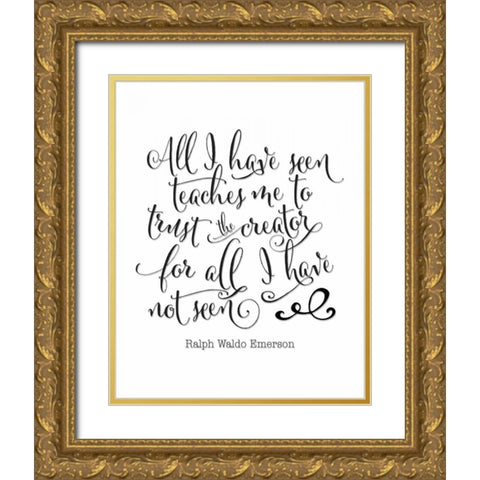 All I have seen
teaches me to
trust the creator
for all I have
not seen
Ralph Waldo Emerson